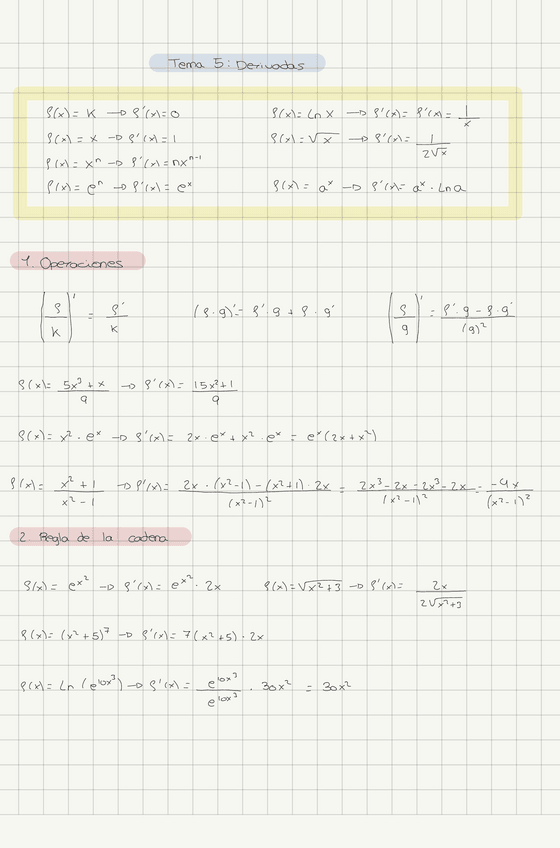 Tema 5: Derivadas
f(x) = K → f'(x) = 0    f(x) = Ln x → f'(x) = f'(x) = 1/x
f(x) = x → f'(x) = 1    f(x) = √x → f'(x) = 1/(2√x)
f(x) = xⁿ → f'(x) = nxⁿ⁻¹
f(x) = eⁿ → f'(x) = eˣ    f(x) = aˣ → f'(x) = aˣ · Ln a
1. Operaciones
(f/K)' = f'/K    (f · g)' = f' · g + f · g'    (f/g)' = (f' · g - f · g')/(g)²
f(x) = (5x³ + x)/9 → f'(x) = (15x² + 1)/9
f(x) = x² · eˣ → f'(x) = 2x · eˣ + x² · eˣ = eˣ(2x + x²)
f(x) = (x² + 1)/(x² - 1) → f'(x) = (2x · (x² - 1) - (x² + 1) · 2x)/(x² - 1)² = (2x³ - 2x - 2x³ - 2x)/(x² - 1)² = -4x/(x² - 1)²
2. Regla de la cadena
f(x) = e^x² → f'(x) = e^x² · 2x    f(x) = √(x² + 3) → f'(x) = 2x/(2√(x² + 3))
f(x) = (x² + 5)⁷ → f'(x) = 7(x² + 5) · 2x
f(x) = Ln (e^10x³) → f'(x) = e^10x³/e^10x³ · 30x² = 30x²